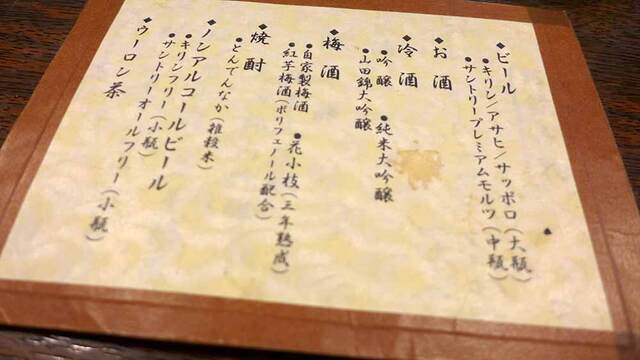 ◆ビール
●キリン/アサヒ/サッポロ(大瓶)
●サントリープレミアムモルツ(中瓶)
◆お酒
◆冷酒
●吟醸 ●純米大吟醸
●山田錦大吟醸
◆梅酒
●自家製梅酒 ●花小枝(三年熟成)
●紅芋梅酒(ポリフェノール配合)
◆焼酎
●とんでんなか(雑穀米)
◆ノンアルコールビール
●キリンフリー(小瓶)
●サントリーオールフリー(小瓶)
◆ウーロン茶